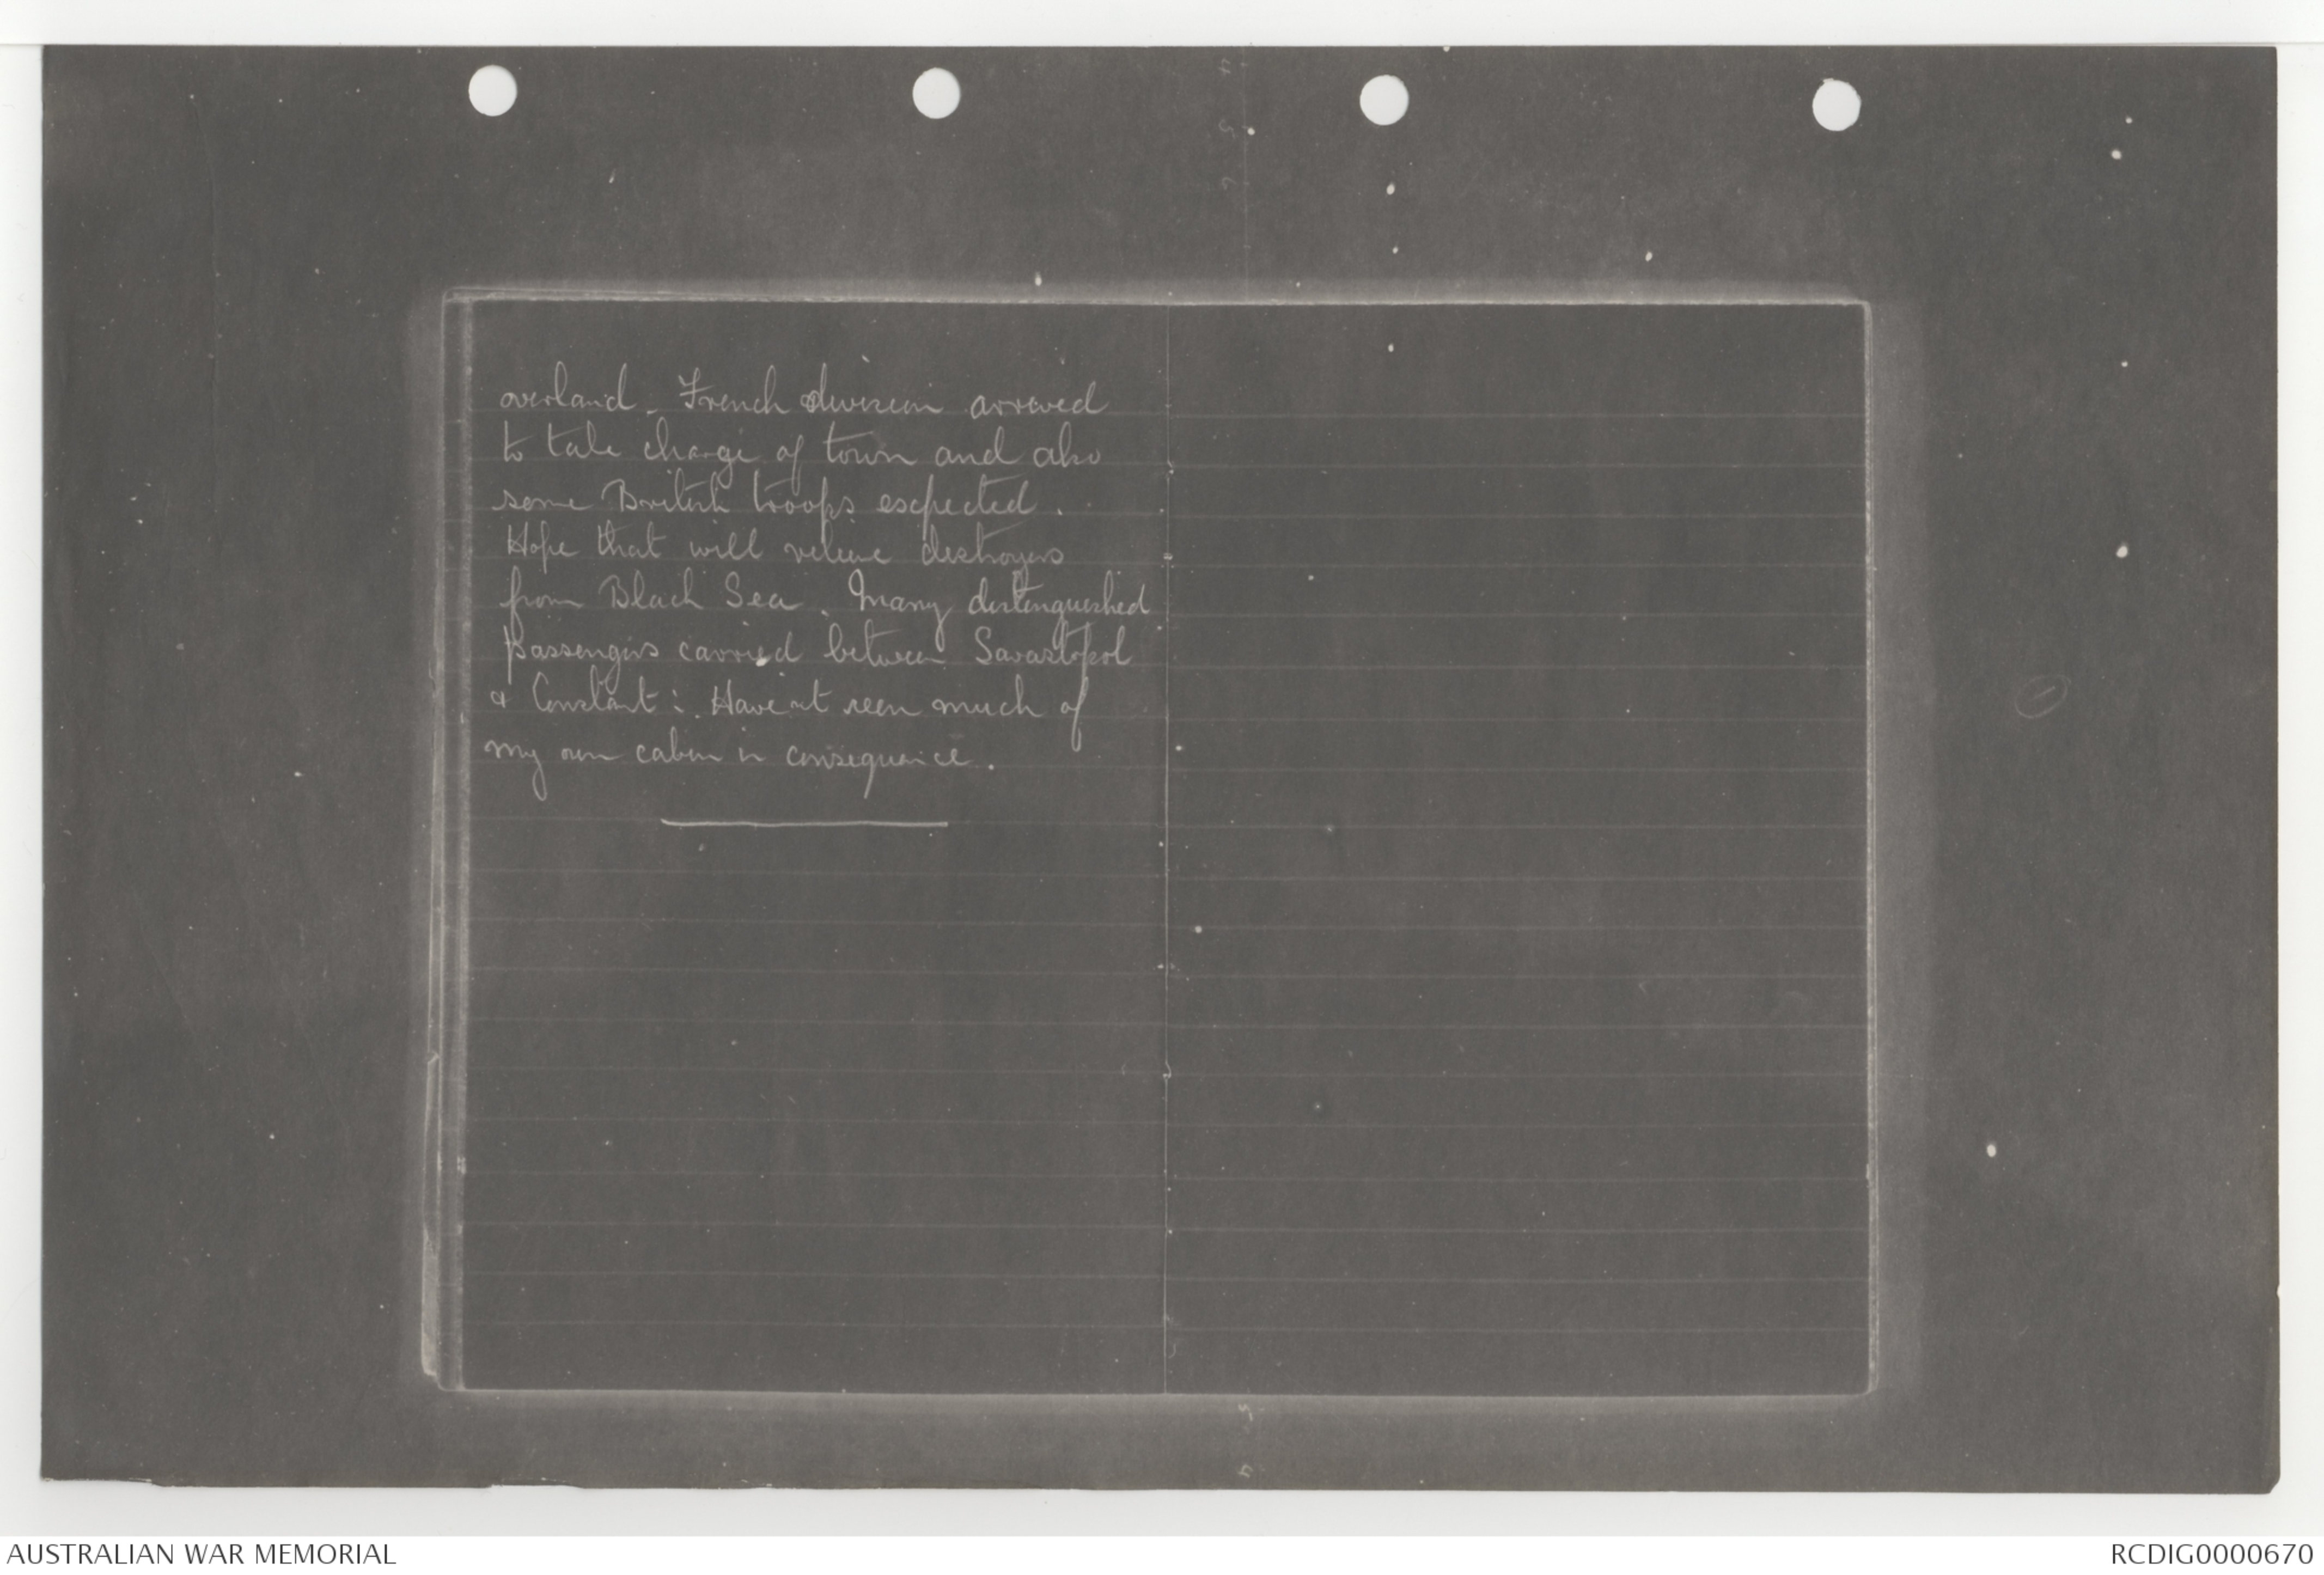 overland. French division arrived
to take charge of town and also
some British troops expected.
Hope that will relieve destroyers
from Black Sea. Many distinguished
passengers carried between Savastopol
& Constant: Have nt seen much of
my own cabin in consequence.
AUSTRALIAN WAR MEMORIAL
RCDIG0000670